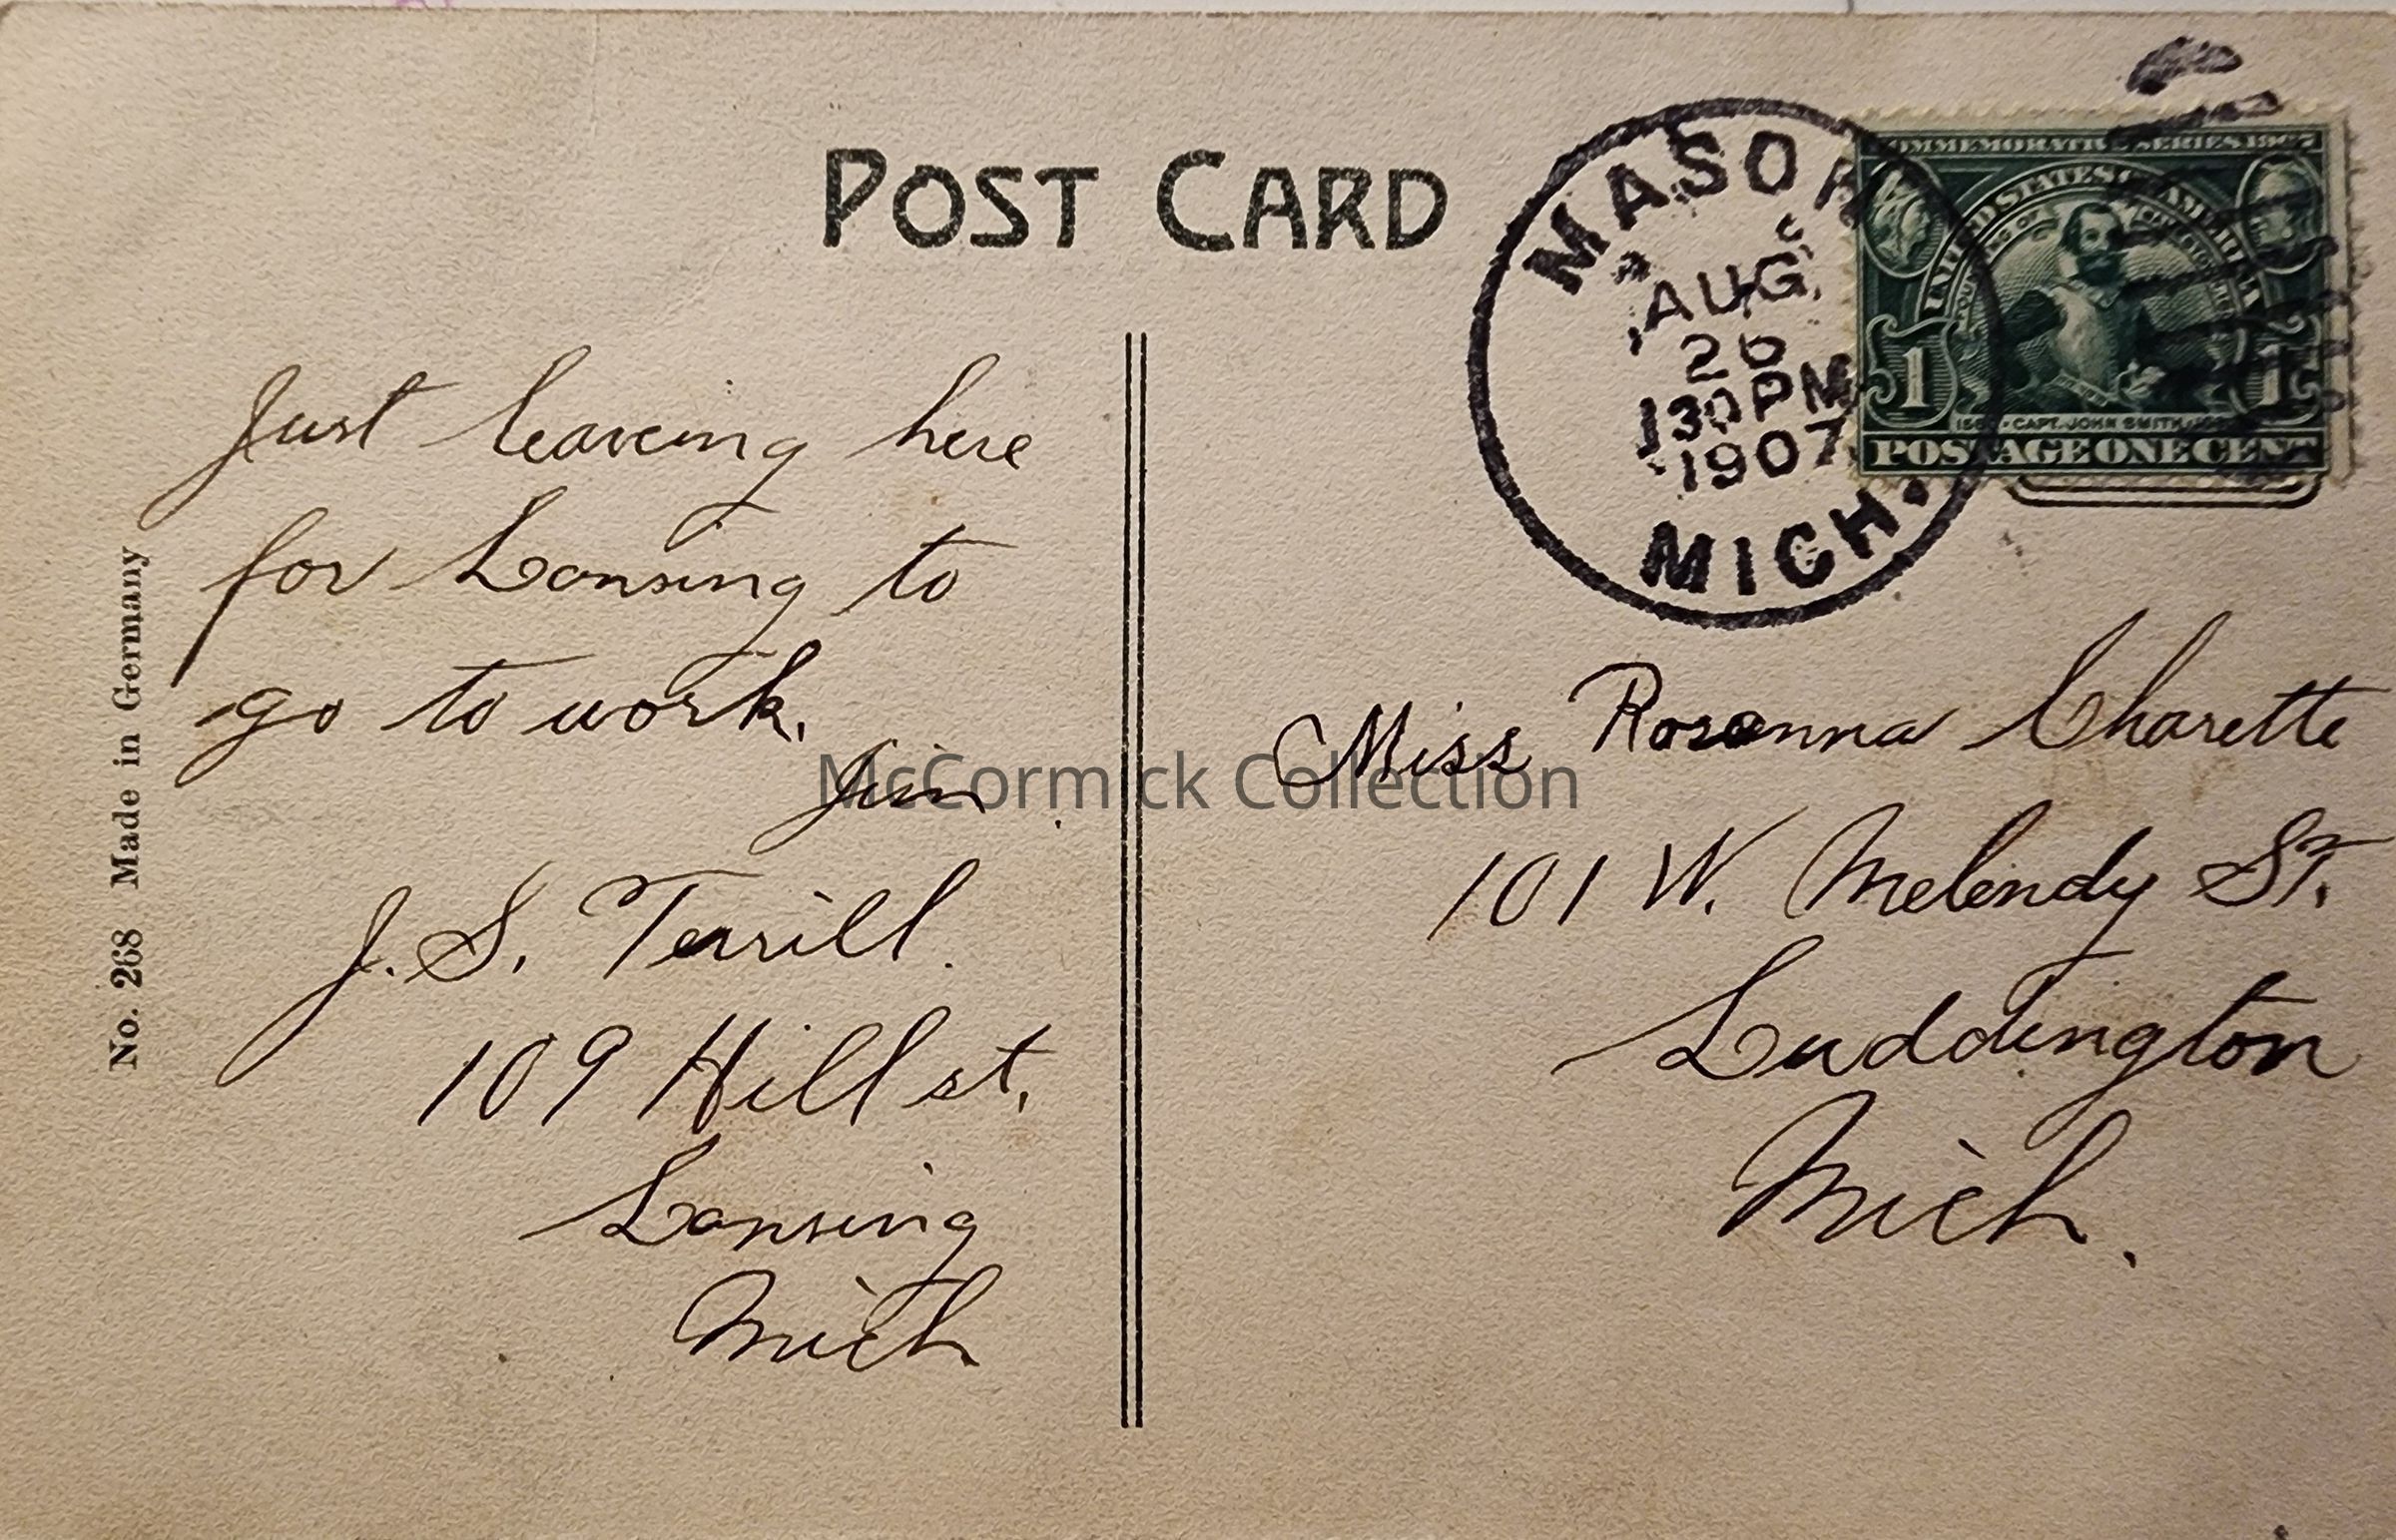 POST CARD
MASON
AUG
26
130PM
1907
MICH.
COMMEMORATIVE SERIES 1907
UNITED STATES OF AMERICA
1 1
CAPT. JOHN SMITH
POSTAGE ONE CENT
Just leaveing here
for Lansing to
go to work.
Jim
J. S. Terrill.
109 Hill st.
Lansing
Mich
Miss Rosanna Charette
101 W. Melendy St.
Luddington
Mich.
No. 268 Made in Germany
McCormick Collection